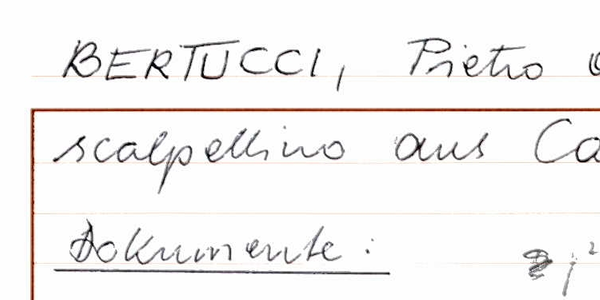 BERTUCCI, Pietro
scalpellino aus Ca
Dokumente: